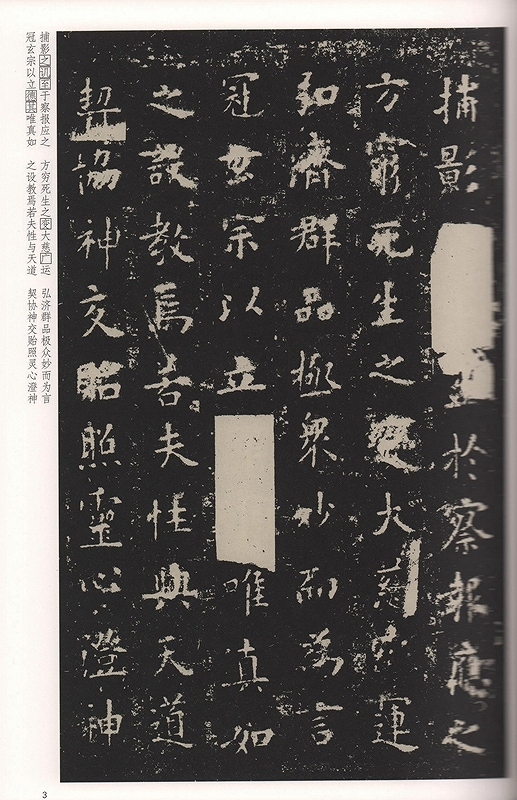 捕影至於察報應之
方窮死生之變大慈廣運
弘濟群品極衆妙而為言
冠玄宗以立唯真如
之設教焉若夫性與天道
契協神交貽照靈心澄神
捕影之训至于察报应之　方穷死生之变大慈广运　弘济群品极众妙而为言
冠玄宗以立德其唯真如　之设教焉若夫性与天道　契协神交贻照灵心澄神
3